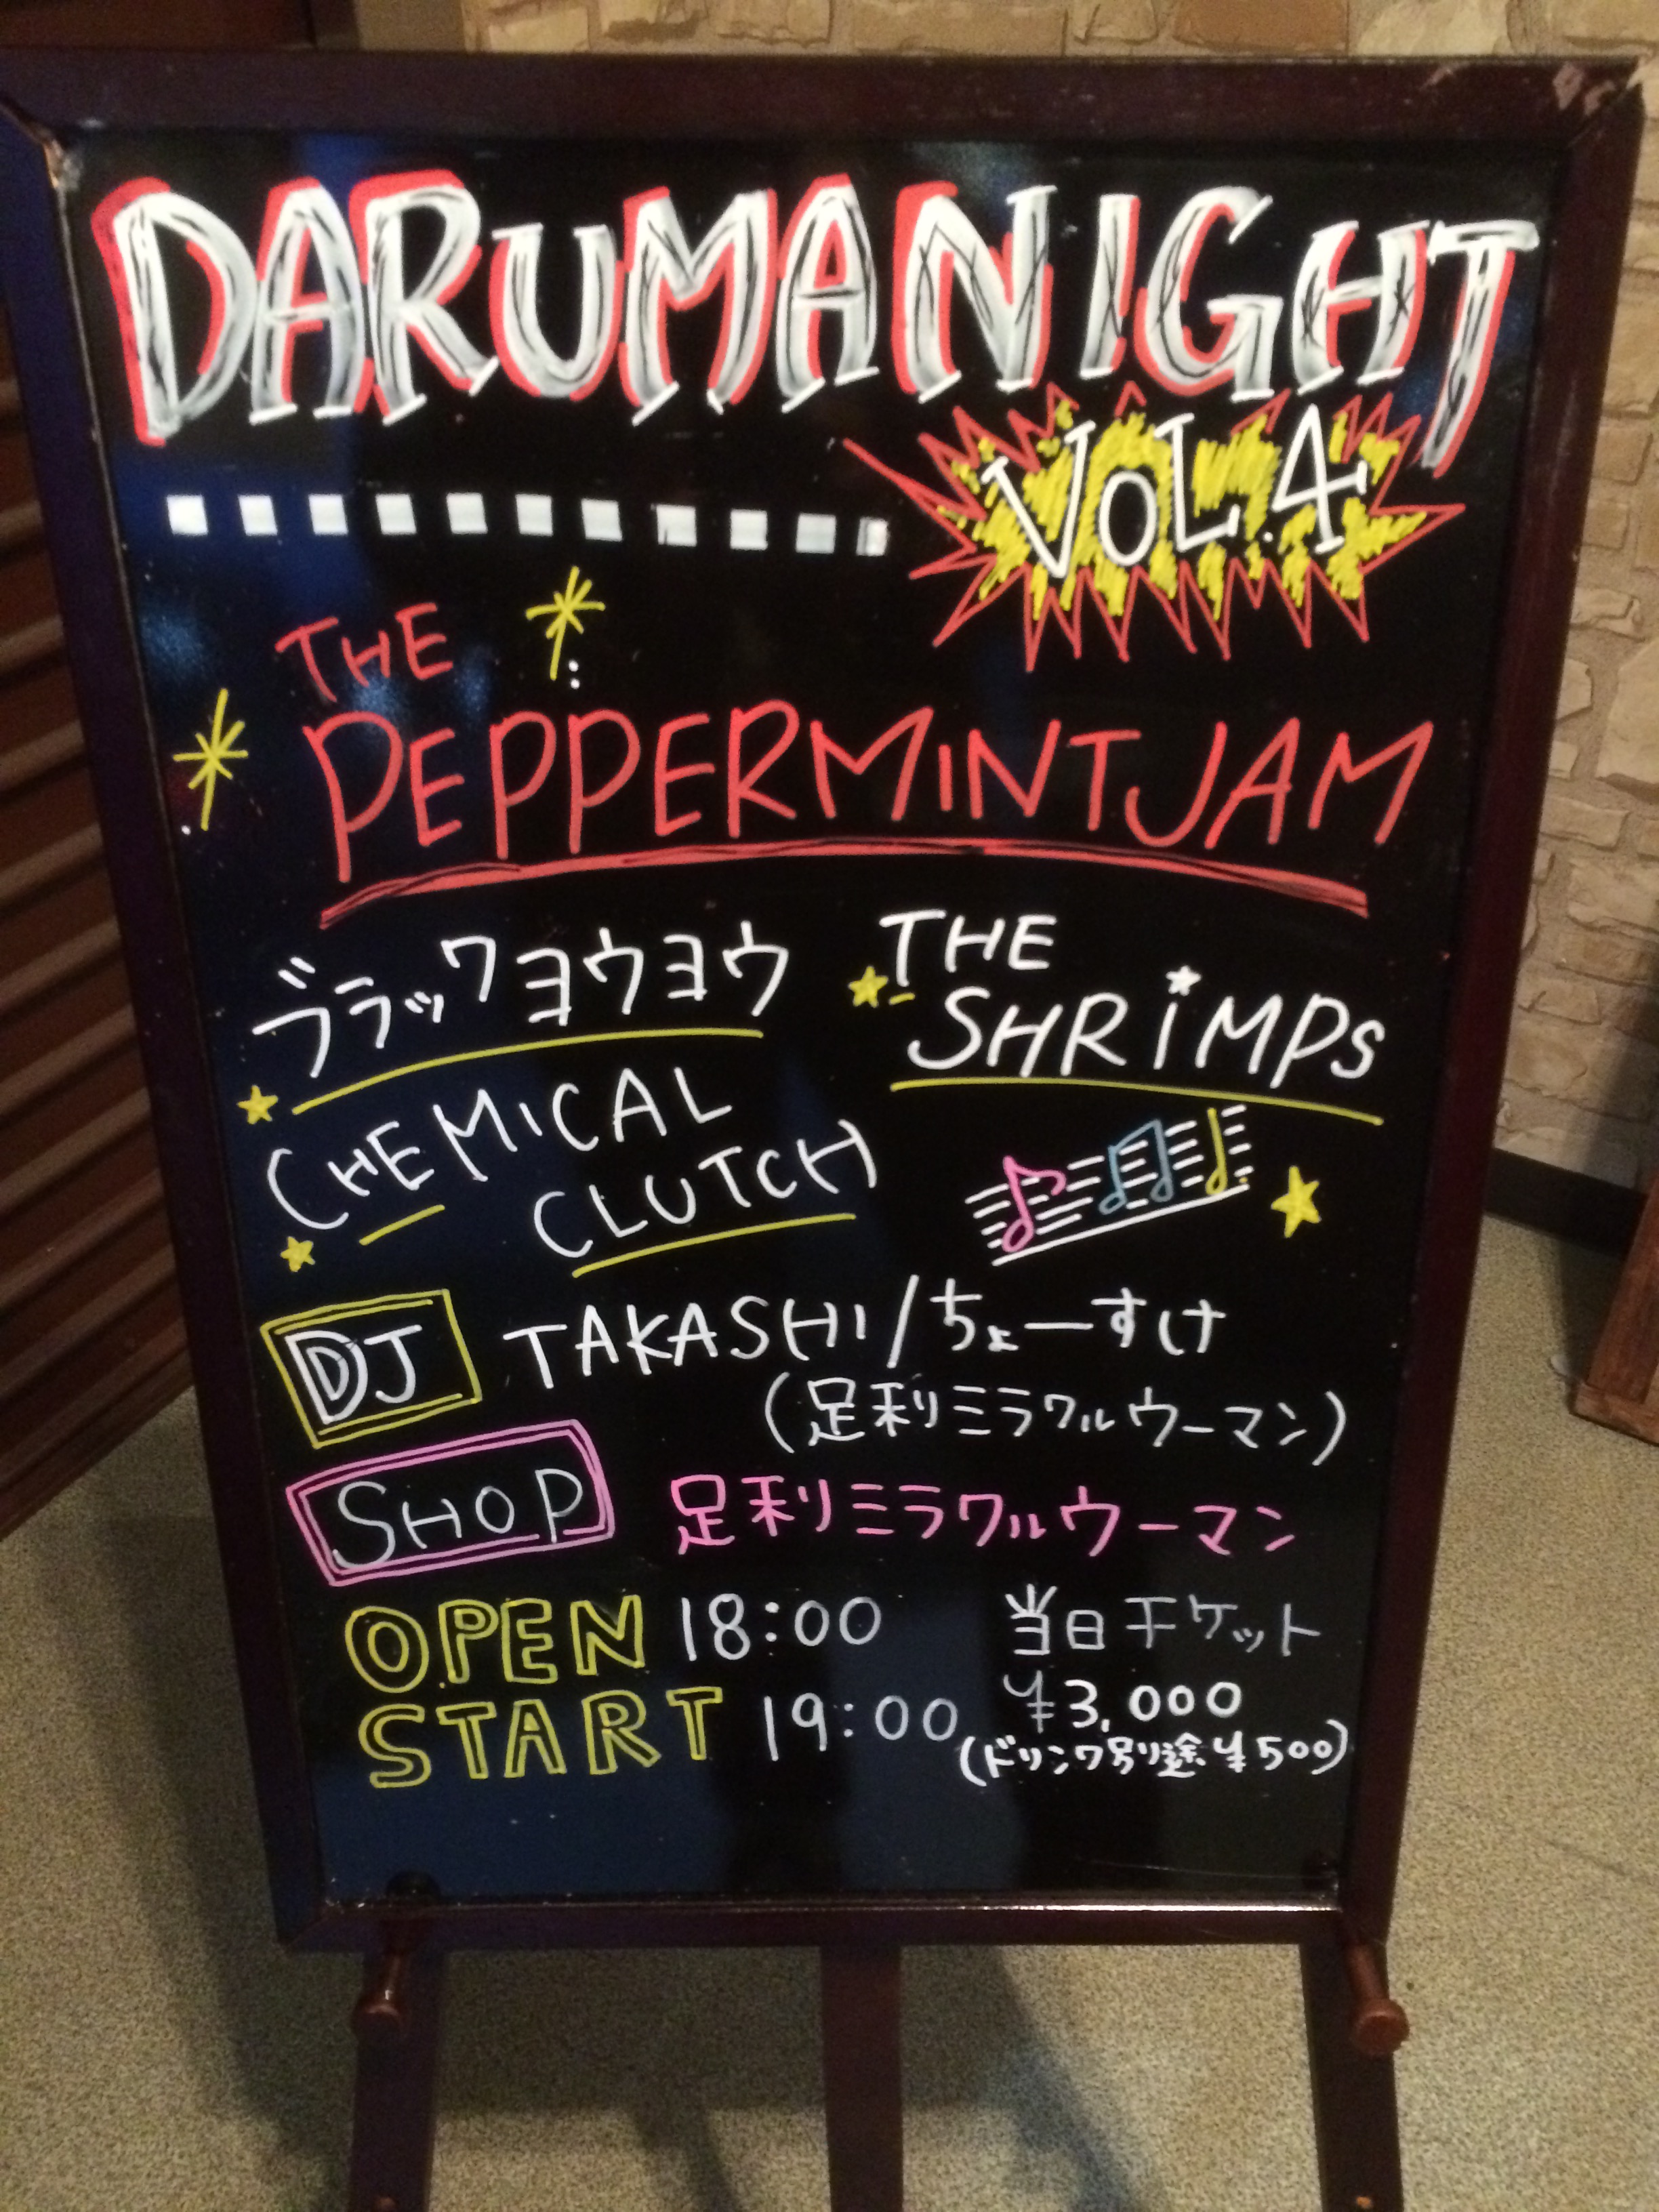 DARUMANIGHT
VOL.4
THE
PEPPERMINTJAM
ブラックヨウヨウ
THE
SHRiMPS
CHEMICAL
CLUTCH
DJ TAKASHI/ちょーすけ
(足利ミラクルウーマン)
SHOP 足利ミラクルウーマン
OPEN 18:00 当日チケット
START 19:00 ¥3,000
(ドリンク別途¥500)